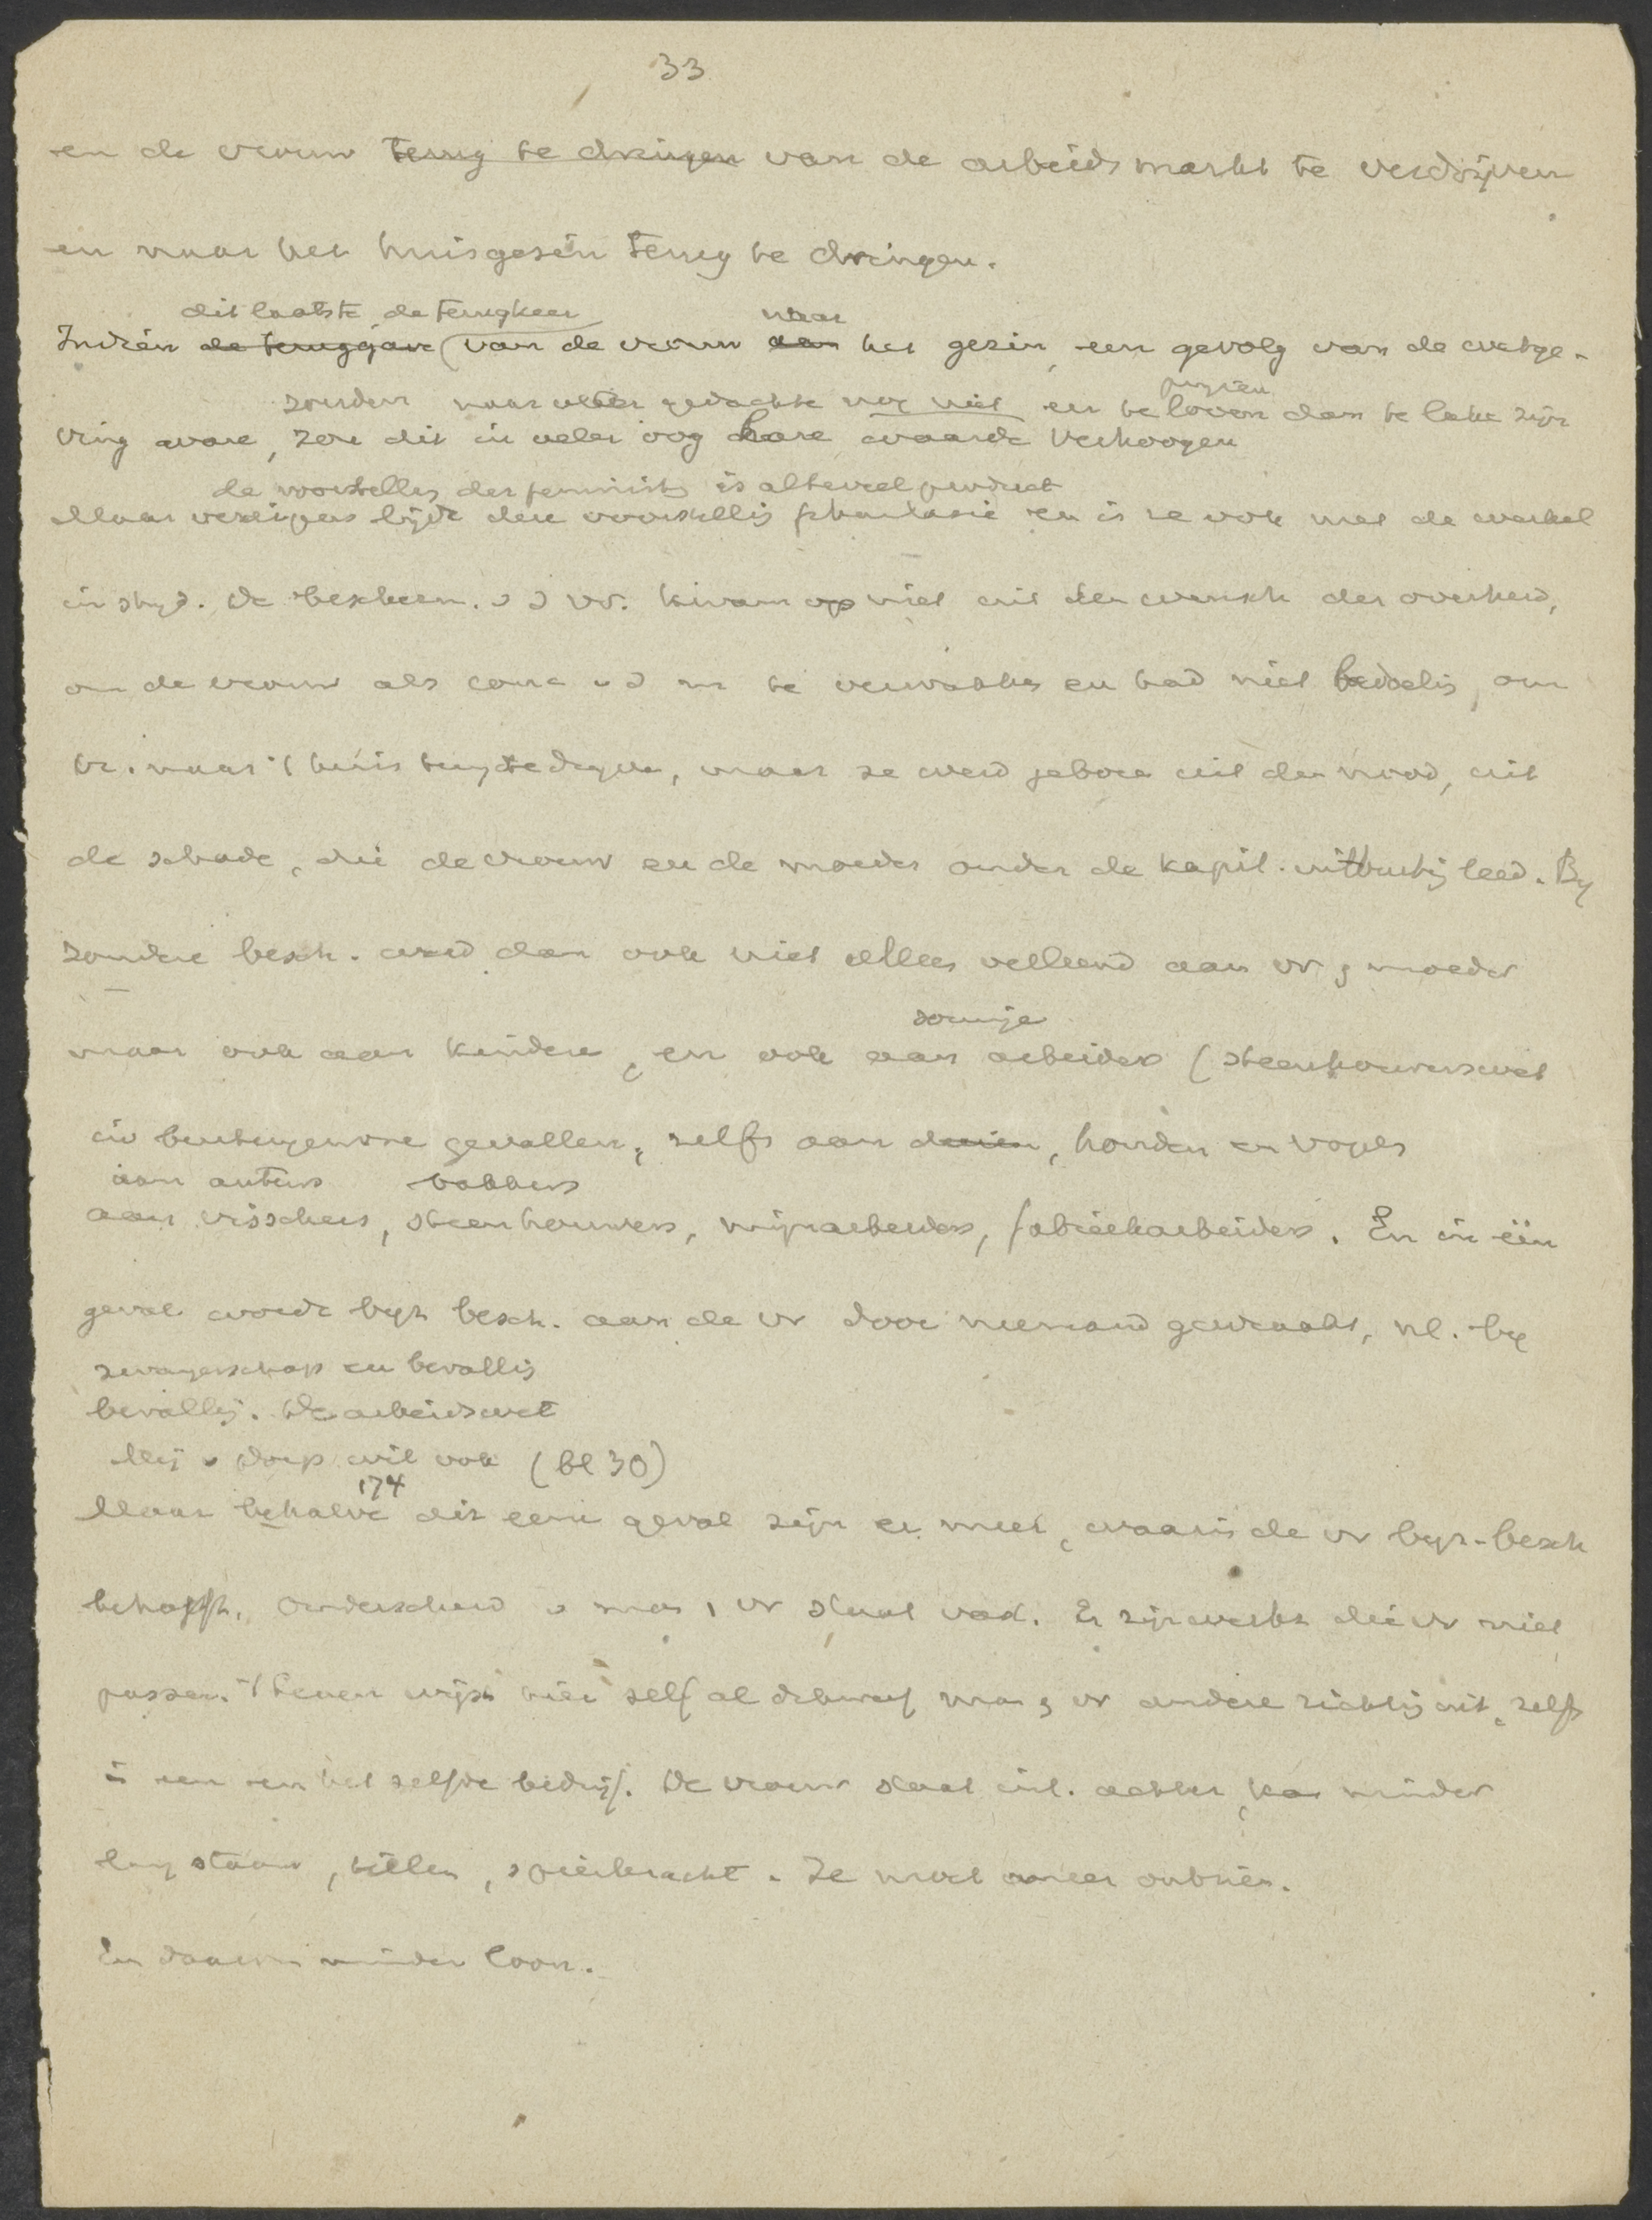 33
en de vrouw terug te dringen van de arbeidsmarkt te verdrijven
en naar het huisgezin terug te dringen.
dit laatste, de terugkeer naar
Indien de teruggave van de vrouw aan het gezin, een gevolg van de wetge-
zouden naar veler gedachte nog niet en te loven dan te laken zijn
ving ware, zou dit in veler oog hare waarde verhoogen
de voorstelling der feministen is alteveel product
Maar deze voorstelling phantasie en is ze ook met de werkel
in strijd. De bescherm. v d vr. kwam op niet uit den wensch der overheid,
om de vrouw als conc. v d m te en had niet bedoeling, om
vr. naar 't huis terug te dringen, maar ze werd geboren uit den nood, uit
de schade, die de vrouw en de moeder onder de kapit. uitbuiting leed. By
zondere besch. werd dan ook niet alleen verleend aan vr, moeder
sommige
maar ook aan kinderen, en ook aan arbeiders (steenhouwerswet
in buitengewone gevallen, zelfs aan dieren, honden en vogels
aan auteurs bakkers
aan visschers, steenhouwers, mijnarbeiders, fabriekarbeiders. En in één
geval wordt byz besch. aan de vr door niemand gewraakt, nl. by
zwangerschap en bevalling
bevalling. De arbeidswet
Mej v Dorp wil ook (bl 30)
174
Maar behalve dit eene geval zijn er meer, waarin de vr byz-besch
behoeft. Onderscheid v man, vr staat vast. Er zijn werken die vr niet
passen. 't Leven wijst hier zelf al man, vr andere richting uit, zelfs
in een en het zelfde bedrijf. De vrouw staat achter, kan minder
lang staan, tillen, spierkracht. Ze moet meer ontzien.
En daarom minder loon.